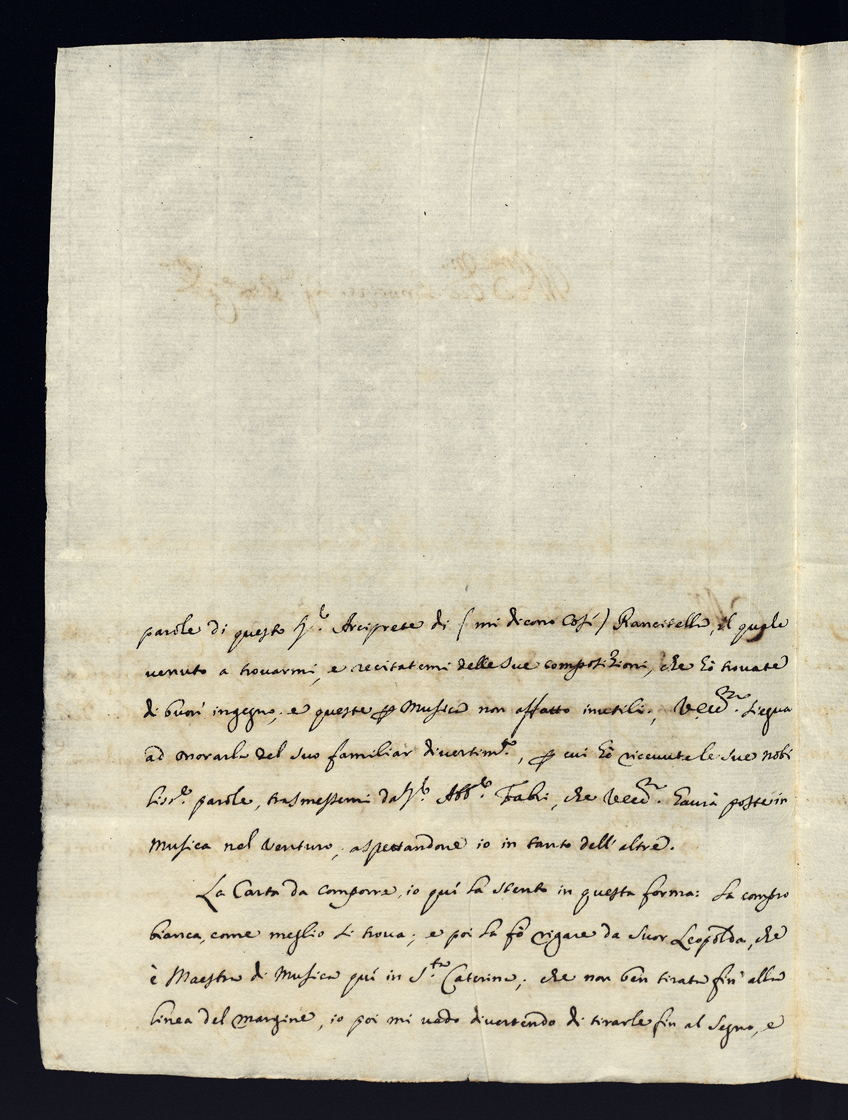 parole di questo Sr. Arciprete di (mi dicono così) Rancitella, il quale
venuto a trovarmi, e recitatemi delle sue composizioni, che hò trovate
di buon' ingegno; e queste p Musica non affatto inutili.; Segua
ad onorarla del suo familiar divertimto., p cui hò ricevute le sue nobi
lissme. parole, trasmessemi dal Sr. Abbe. Fabri, che havrà poste in
Musica nel venturo; aspettandone io in tanto dell'altre.
La Carta da comporre, io quì la stento in questa forma: La compro
bianca, come meglio si trova; e poi la fò rigare da Suor Leopolda, che
è Maestra di Musica quì in Sta. Caterina; che non ben tirata fin' alla
linea del margine, io poi mi vado divertendo di tirarle fin al segno, e